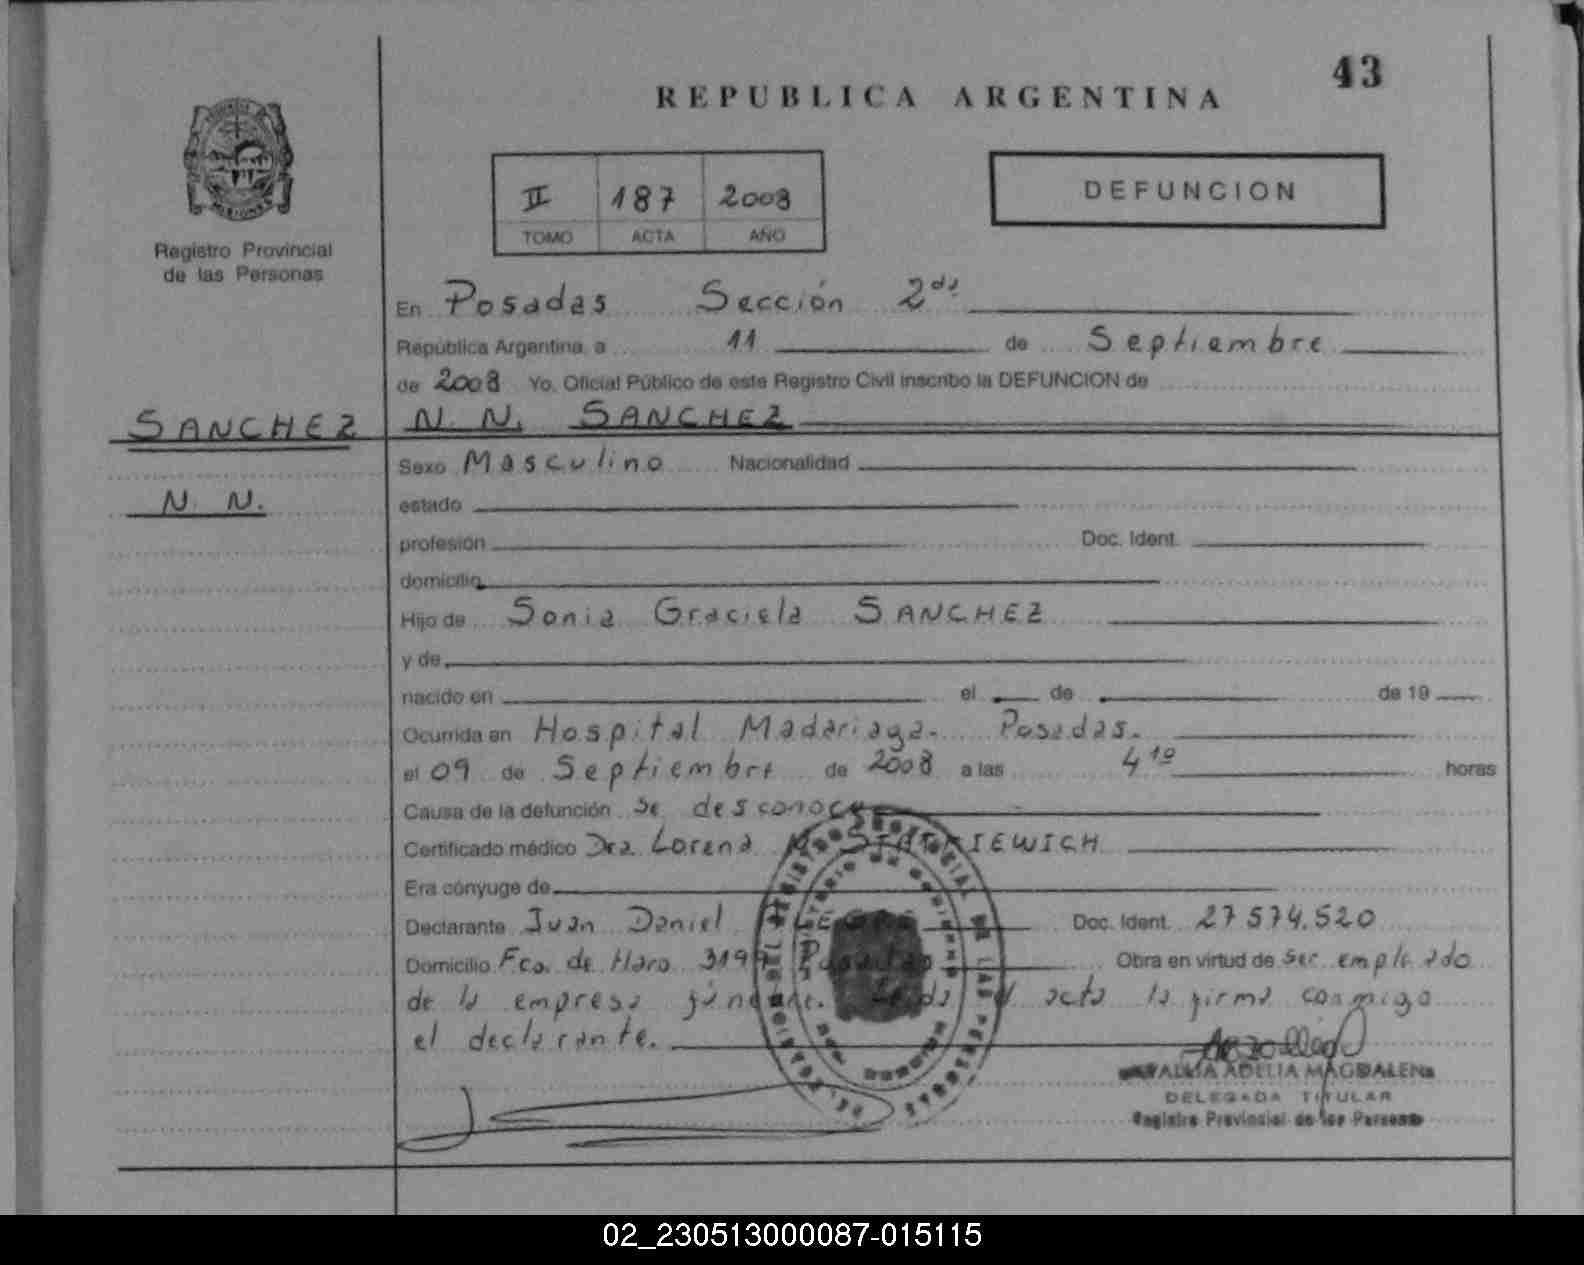 43
REPUBLICA ARGENTINA
II 187 2008
TOMO ACTA AÑO
DEFUNCION
MISIONES
Registro Provincial
de las Personas
En Posadas Sección 2da
República Argentina, a 11 de Septiembre
de 2008 Yo, Oficial Público de este Registro Civil inscribo la DEFUNCION de
SANCHEZ N. N. SANCHEZ
Sexo Masculino Nacionalidad
N. N.
estado
profesión Doc. Ident.
domicilio
Hijo de Sonia Graciela SANCHEZ
y de
nacido en el de de 19
Ocurrida en Hospital Madariaga. Posadas.
el 09 de Septiembre de 2008 a las 4 10 horas
Causa de la defunción se desconoce
Certificado médico Dra. Lorena
Era cónyuge de
Declarante Juan Daniel Doc. Ident. 27 574.520
Domicilio Fco. de Haro Obra en virtud de ser empleado
de la empresa acta la firma conmigo
el declarante.
ADELIA MAGDALENA
DELEGADA TITULAR
Registro Provincial de las Personas
02_230513000087-015115